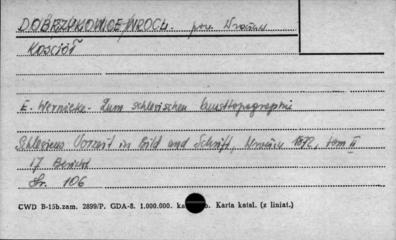 DOBRZYKOWICE/WROCŁ. pow. Wrocław
KOŚCIÓŁ
E. Wernicke - Zum schlesischen Kunsttopographie
Schlesiens Vorzeit in Bild und Schrift, Wrocław 1872, tom II
17 Bericht
Str. 106
CWD B-15b.zam. 2899/P. GDA-8. 1.000.000. Karta katal. (z liniat.)